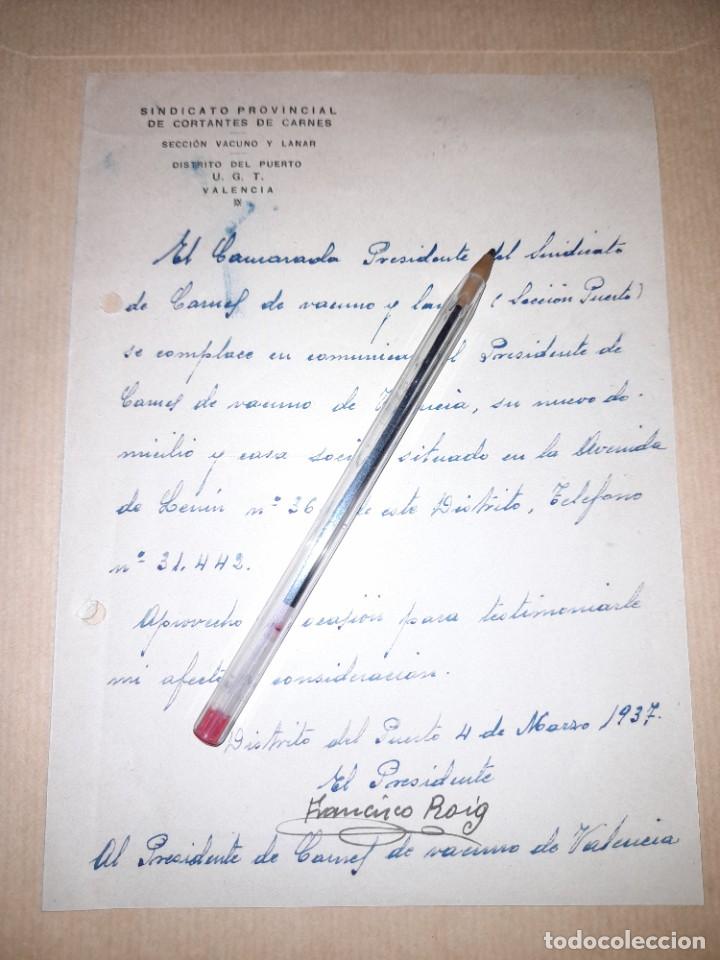 SINDICATO PROVINCIAL
DE CORTANTES DE CARNES
SECCIÓN VACUNO Y LANAR
DISTRITO DEL PUERTO
U. G. T.
VALENCIA
El Camarada Presidente del Sindicato
de Carnes de vacuno y (Sección Puerto)
se complace en Presidente de
Carnes de vacuno de su nuevo do-
micilio y casa situado en la Avenida
de Lenin nº 36 de este Distrito, Teléfono
nº 31.442.
Aprovecho ocasión para testimoniarle
mi consideración.
Distrito del Puerto 4 de Marzo 1937.
El Presidente
Francisco Roig
Al Presidente de Carnes de vacuno de Valencia
todocoleccion